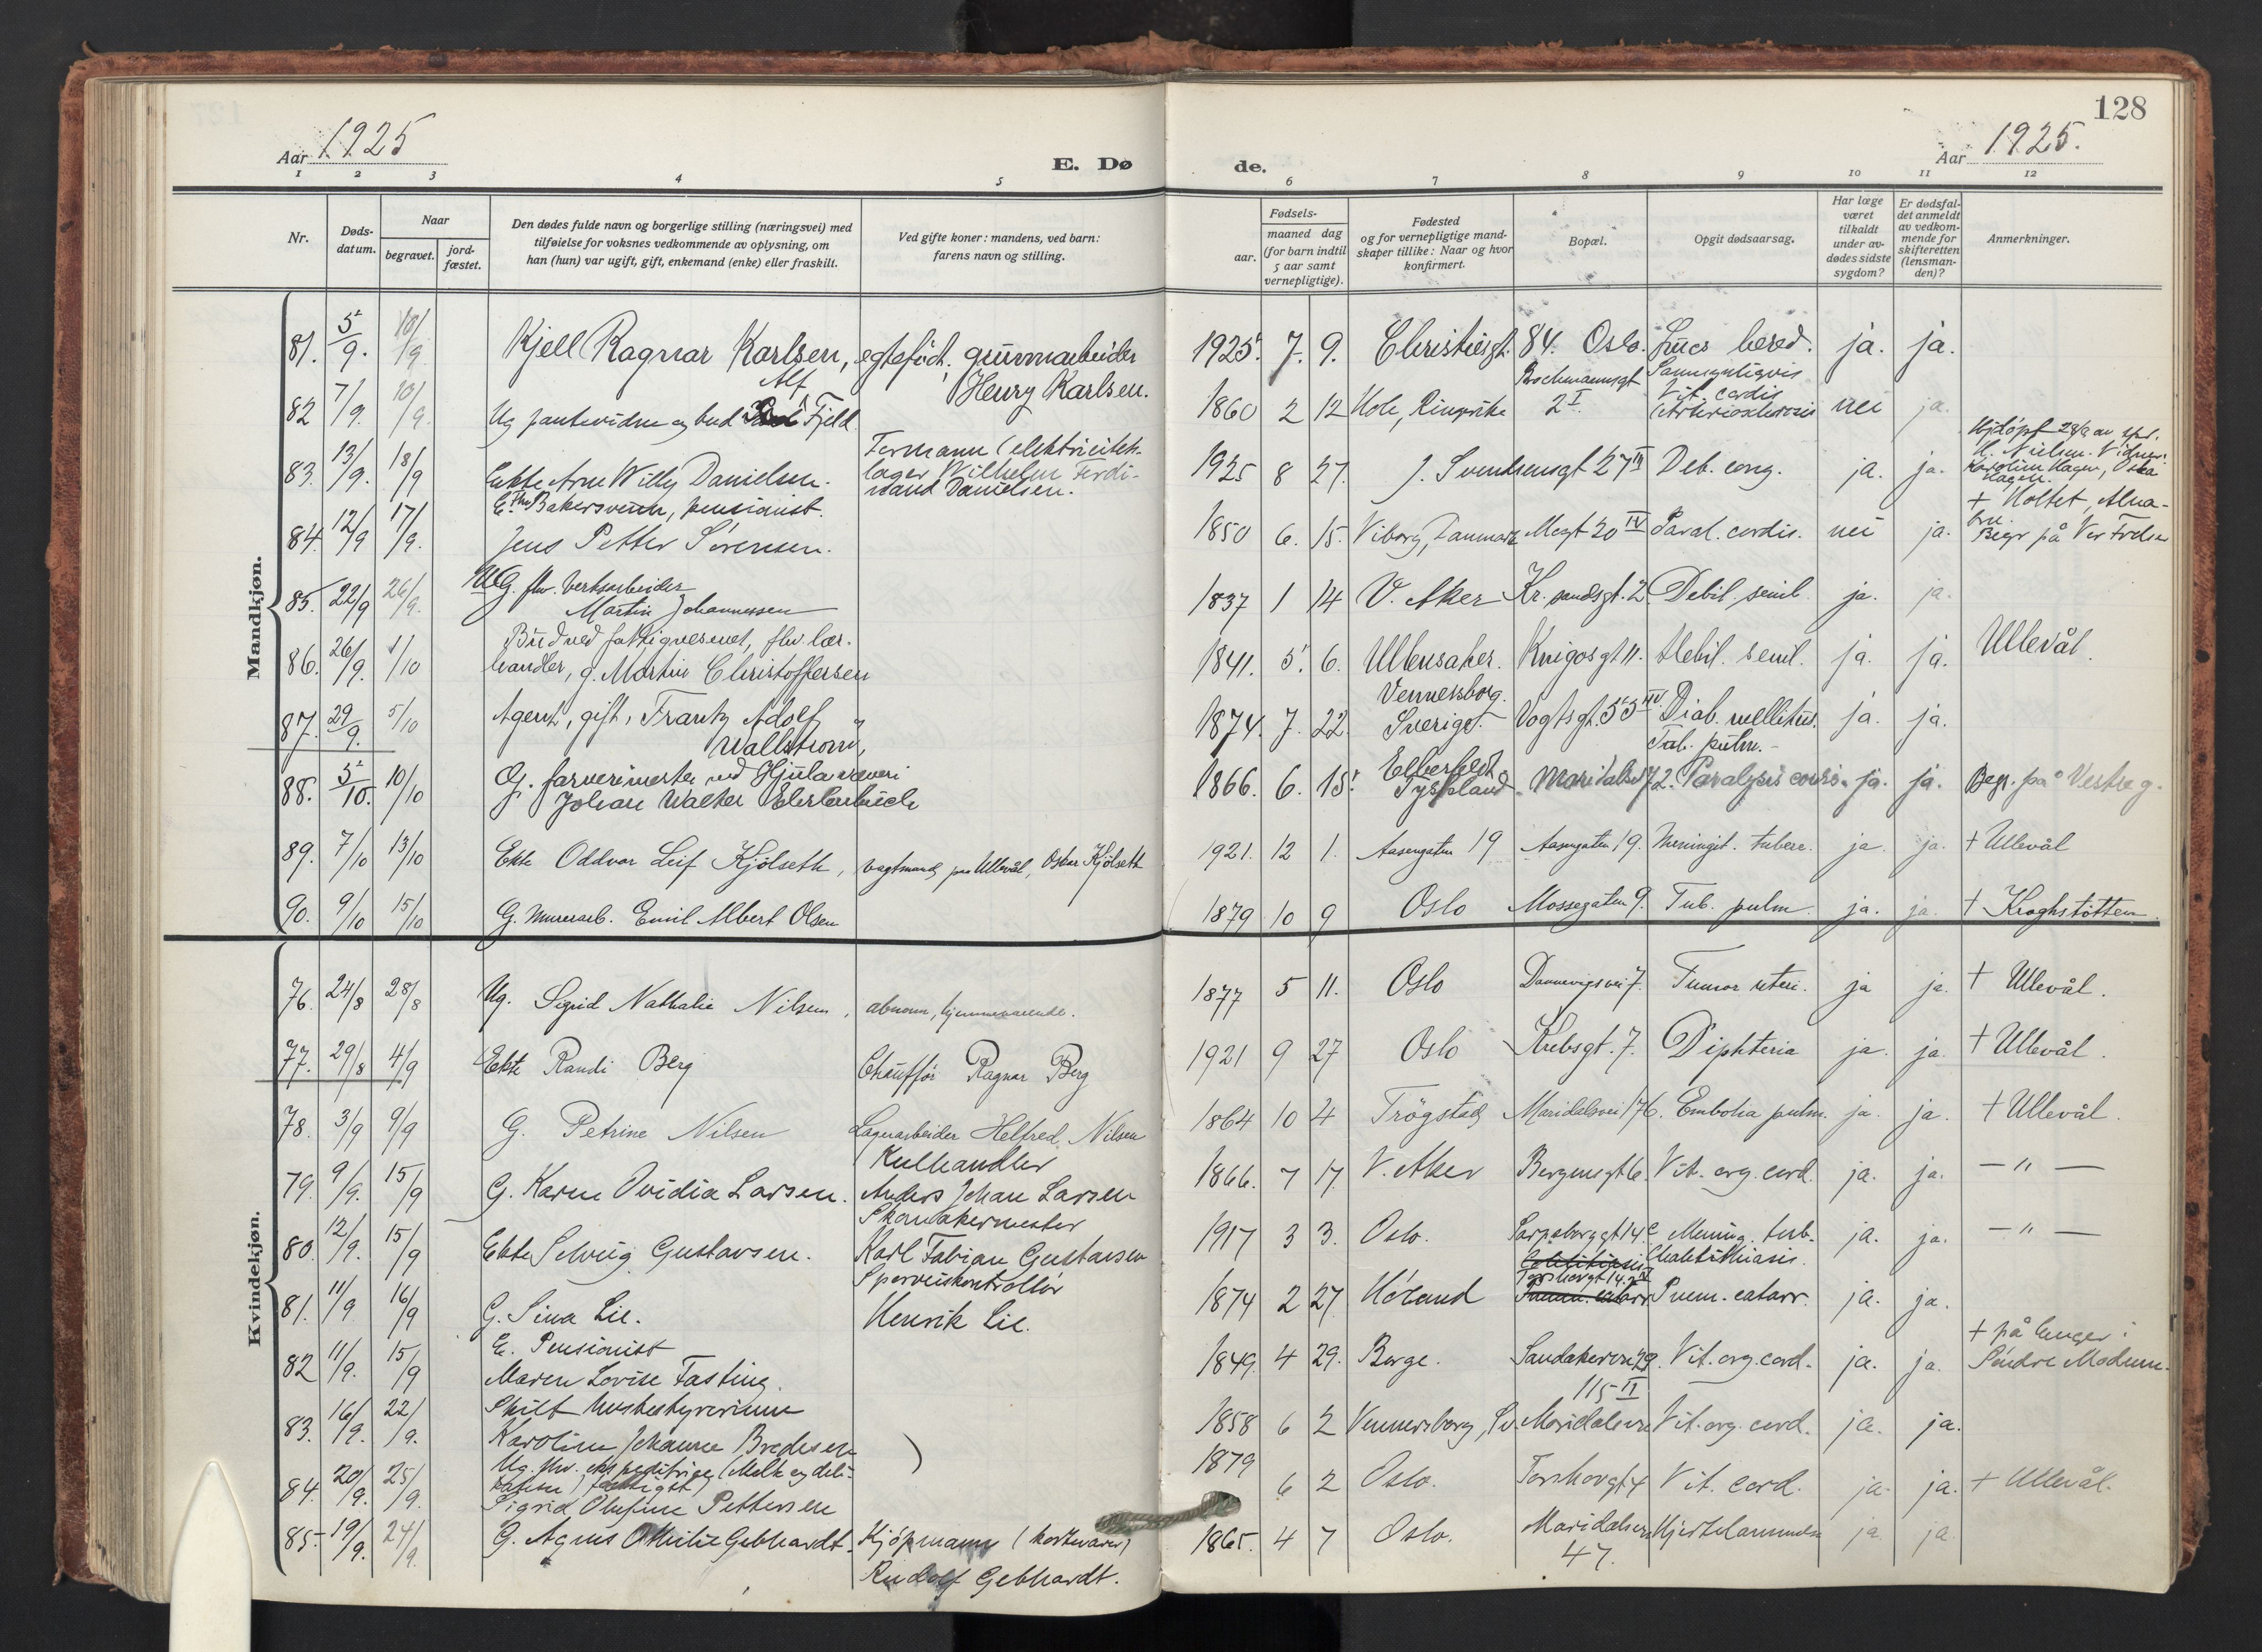 128
Aar 1925
E. Dø
de.
Aar 1925.
1 2 3 4 5 6 7 8 9 10 11 12
Nr.
Døds-
datum.
Naar
begravet.
jord-
fæstet.
Den dødes fulde navn og borgerlige stilling (næringsvei) med
tilføielse for voksnes vedkommende av oplysning, om
han (hun) var ugift, gift, enkemand (enke) eller fraskilt.
Ved gifte koner: mandens, ved barn:
farens navn og stilling.
Fødsels-
aar.
maaned dag
(for barn indtil
5 aar samt
vernepligtige).
Fødested
og for vernepligtige mand-
skaper tillike: Naar og hvor
konfirmert.
Bopæl.
Opgit dødsaarsag.
Har læge
været
tilkaldt
under av-
dødes sidste
sygdom?
Er dødsfal-
det anmeldt
av vedkom-
mende for
skifteretten
(lensman-
den)?
Anmerkninger.
Mandkjøn.
81. 5/9. 10/9 Kjell Ragnar Karlsen, egtefödt, gummiarbeider
Henry Karlsen.
1925. 7. 9. Christiesgt. 84. Oslo. Lues hered. ja. ja.
82 7/9. 10/9 Ug pantevidne og bud Alf Fjeld
1860 2 12 Hole, Ringerike Brochmannsgt
2 I. Sannsynligvis
Vit. cordis
(Arteriosklerosis nei ja.
83. 13/9. 18/9 Ekte Arne Willy Danielsen.
Formann (elektricitek-
lager Wilhelm Ferdi-
nand Danielsen.
1925 8 27. J. Svendsensgt 27 III Deb. cong. ja. ja.
Hjdöpt 28/8 av spl.
H. Nielsen. Vidner:
Karoline Hagen,
Hagen.
84. 12/9 17/9. E. Bakersvenn, pensionist.
Jens Petter Sörensen.
1850 6. 15. Viborg, Danmark Mogt 20 IV Paral. cordis. nei ja.
+ Holtet, Alna-
bru.
Begr på Vor Frelser
85. 22/9 26/9. UG. fhv. verksarbeider
Martin Johannessen
1837 1 14 V. Aker Kr.sandsgt. 2. Debil. senil. ja. ja.
86. 26/9. 1/10 Bud ved fattigvesenet, fhv. lær-
handler, g. Martin Christoffersen
1841. 5. 6. Ullensaker. Knigosgt 11. Debil. senil. ja. ja. Ullevål.
87. 29/9. 5/10 Agent, gift, Frantz Adolf
Wallström,
1874. 7. 22. Vennersborg.
Sverige. Vogtsgt. 55 IV. Diab. mellitus.
Tub. pulm. ja. ja.
88. 5/10. 10/10 G. farverimester ved Hjula væveri
Johan Walter Ehrlenbuch
1866. 6. 15. Elberfeldt
Tyskland. Maridalsv 72. Paralysis cordis. ja. ja. Begr. på Vestre g.
89. 7/10 13/10 Ekte Oddvar Leif Kjölseth, vagtmand paa Ullevål, Oskar Kjölseth
1921. 12 1. Aasengaten 19 Aasengaten 19. Meningit. tuberc. ja ja. + Ullevål
90. 9/10 15/10 G. murerarb. Emil Albert Olsen
1879 10 9 Oslo Mossegaten 9. Tub. pulm. ja. ja. + Kroghstötten.
Kvindekjøn.
76. 24/8 28/8 Ug. Sigrid Nathalie Nilsen, abnorm, hjemmeværende.
1877 5 11. Oslo Dannevigsvei 7. Tumor uteri. ja ja. + Ullevål.
77. 29/8 4/9 Ekte Randi Berg Chauffør Ragnar Berg
1921 9 27 Oslo Krebsgt. 7. Diphteria ja ja. + Ullevål.
78. 3/9 9/9 G. Petrine Nilsen Lagerarbeider Helfred Nilsen
1864 10 4 Trögstad Maridalsvei 176. Embolia pulm. ja. ja. + Ullevål.
79. 9/9. 15/9 G. Karen Ovidia Larsen. Kulhandler
Anders Johan Larsen
1866. 7 17. V. Aker Bergensgt 6. Vit. org. cord. ja. ja. — " —
80. 12/9. 15/9 Ekte Solveig Gustavsen. Skomakermester
Karl Fabian Gustavsen
1917 3 3. Oslo. Sarpsborggt 14 c Mening. tub. ja. ja. — " —
81. 11/9 16/9 G. Sina Lie. Sporveiskontrollör
Henrik Lie.
1874 2 27 Höland Torshovgt 14. IV Cholelithiasis.
Pneum. catarr. ja. ja.
82 11/9. 15/9 E. Pensionist
Maren Lovise Fasting.
1849. 4 29. Borge. Sandakervn 29. Vit. org. cord. ja. ja. + på Enger i
Söndre Modum.
83. 16/9. 22/9. Skilt husbestyrerinne
Karoline Johanne Bredesen
1858 6 2 Vennersborg, Sv. 115 II
Maridalsvn Vit. org. cord. ja. ja.
84. 20/9. 25/9. Ug. fhv. ekspeditrise (Melk og deli-
katesse)
Sigrid Olufine Pettersen
1879 6 2 Oslo. Torshovgt 4 Vit. cord. ja. ja. + Ullevål.
85. 19/9. 24/9. G. Agnes Othilie Gebhardt. Kjöpmann (kortevarer)
Rudolf Gebhardt.
1865. 4 7 Oslo. Maridalsvn
47. Hjertelammelse ja ja.